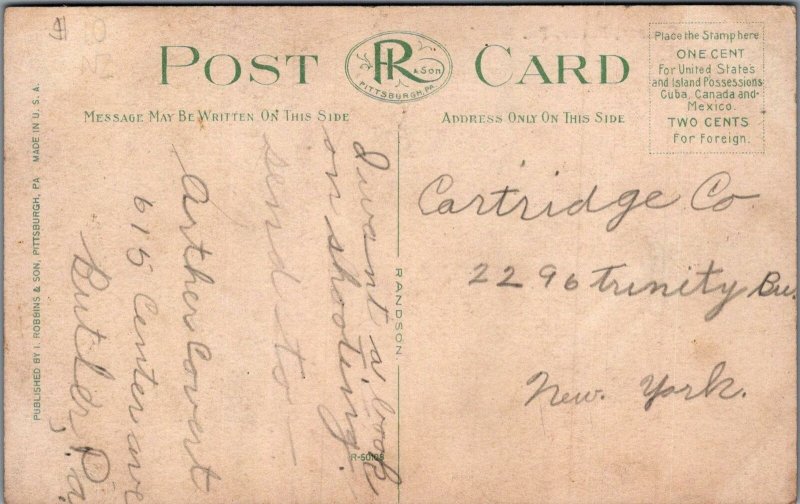 POST CARD
R & Son
PITTSBURGH, PA.
MESSAGE MAY BE WRITTEN ON THIS SIDE
ADDRESS ONLY ON THIS SIDE
Place the Stamp here
ONE CENT
For United States
and Island Possessions
Cuba, Canada and
Mexico.
TWO CENTS
For Foreign.
PUBLISHED BY I. ROBBINS & SON, PITTSBURGH, PA. MADE IN U. S. A.
I want a book
on shooting.
send to
Arther Covert
615 Center ave
Butler, Pa
RANDSON
R-50105
Cartridge Co
2296 trinity Bu.
New. York.
10